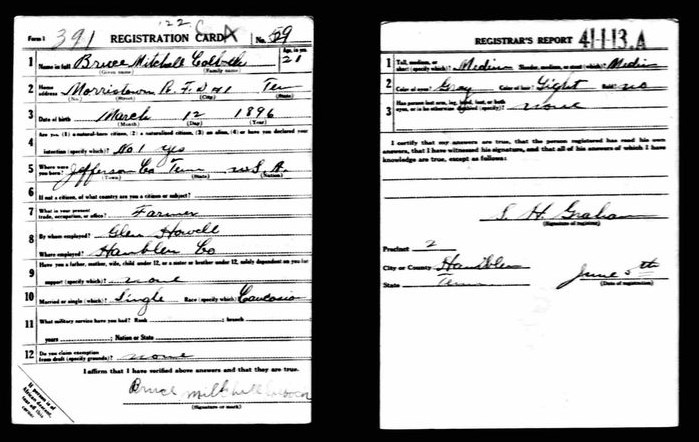 '22
Form 1 391 REGISTRATION CARD A No. 59
1 Name in full Bruce Mitchell Age, in yrs 21
(Given name) (Family name)
2 Home address Morristown R. F. D #1 Ten
(No.) (Street) (City) (State)
3 Date of birth March 12 1896
(Month) (Day) (Year)
4 Are you (1) a natural-born citizen, (2) a naturalized citizen, (3) an alien, (4) or have you declared your
intention (specify which)? No 1 yes
5 Where were you born? Jefferson Co Tenn U. S. A.
(Town) (State) (Nation)
6 If not a citizen, of what country are you a citizen or subject?
7 What is your present trade, occupation, or office? Farmer
8 By whom employed? Glen Howell
Where employed? Hamblen Co
9 Have you a father, mother, wife, child under 12, or a sister or brother under 12, solely dependent on you for
support (specify which)? none
10 Married or single (which)? Single Race (specify which)? Caucasian
11 What military service have you had? Rank ; branch
years ; Nation or State
12 Do you claim exemption from draft (specify grounds)? none
I affirm that I have verified above answers and that they are true.
Bruce
(Signature or mark)
If person is of African descent, tear off this corner
REGISTRAR'S REPORT 41-1-13. A
1 Tall, medium, or short (specify which)? Medium Slender, medium, or stout (which)? Medium
2 Color of eyes? Gray Color of hair? Light Bald? no
3 Has person lost arm, leg, hand, foot, or both eyes, or is he otherwise disabled (specify)? none
I certify that my answers are true, that the person registered has read his own
answers, that I have witnessed his signature, and that all of his answers of which I have
knowledge are true, except as follows:
S. H. Graham
(Signature of registrar)
Precinct 2
City or County Hamblen
State Tenn
June 5th
(Date of registration)